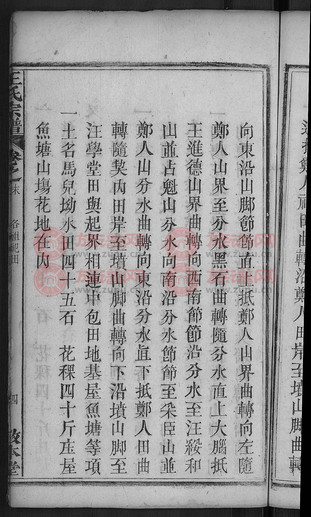 向東沿山脚節節直上抵鄭人山界曲轉向左隨
鄭人山界至分水黑石曲轉隨分水直上大腦抵
王進德山界曲轉向西南節節沿分水至汪綬和
山並古魁山分水曲轉向南沿分水節節至朵臣山並
鄭人山分水曲轉向東沿分水直下抵鄭人田曲
轉隨契內田岸至墳山脚曲轉向下沿墳山脚至
汪學堂田與起界相連中包田地基屋魚塘等項
一土名馬兒坳水田四十五石 花稞四十斤庄屋
魚塘山塲花地在內
王氏宗譜
卷之末
各祖祀田
四
敬本堂